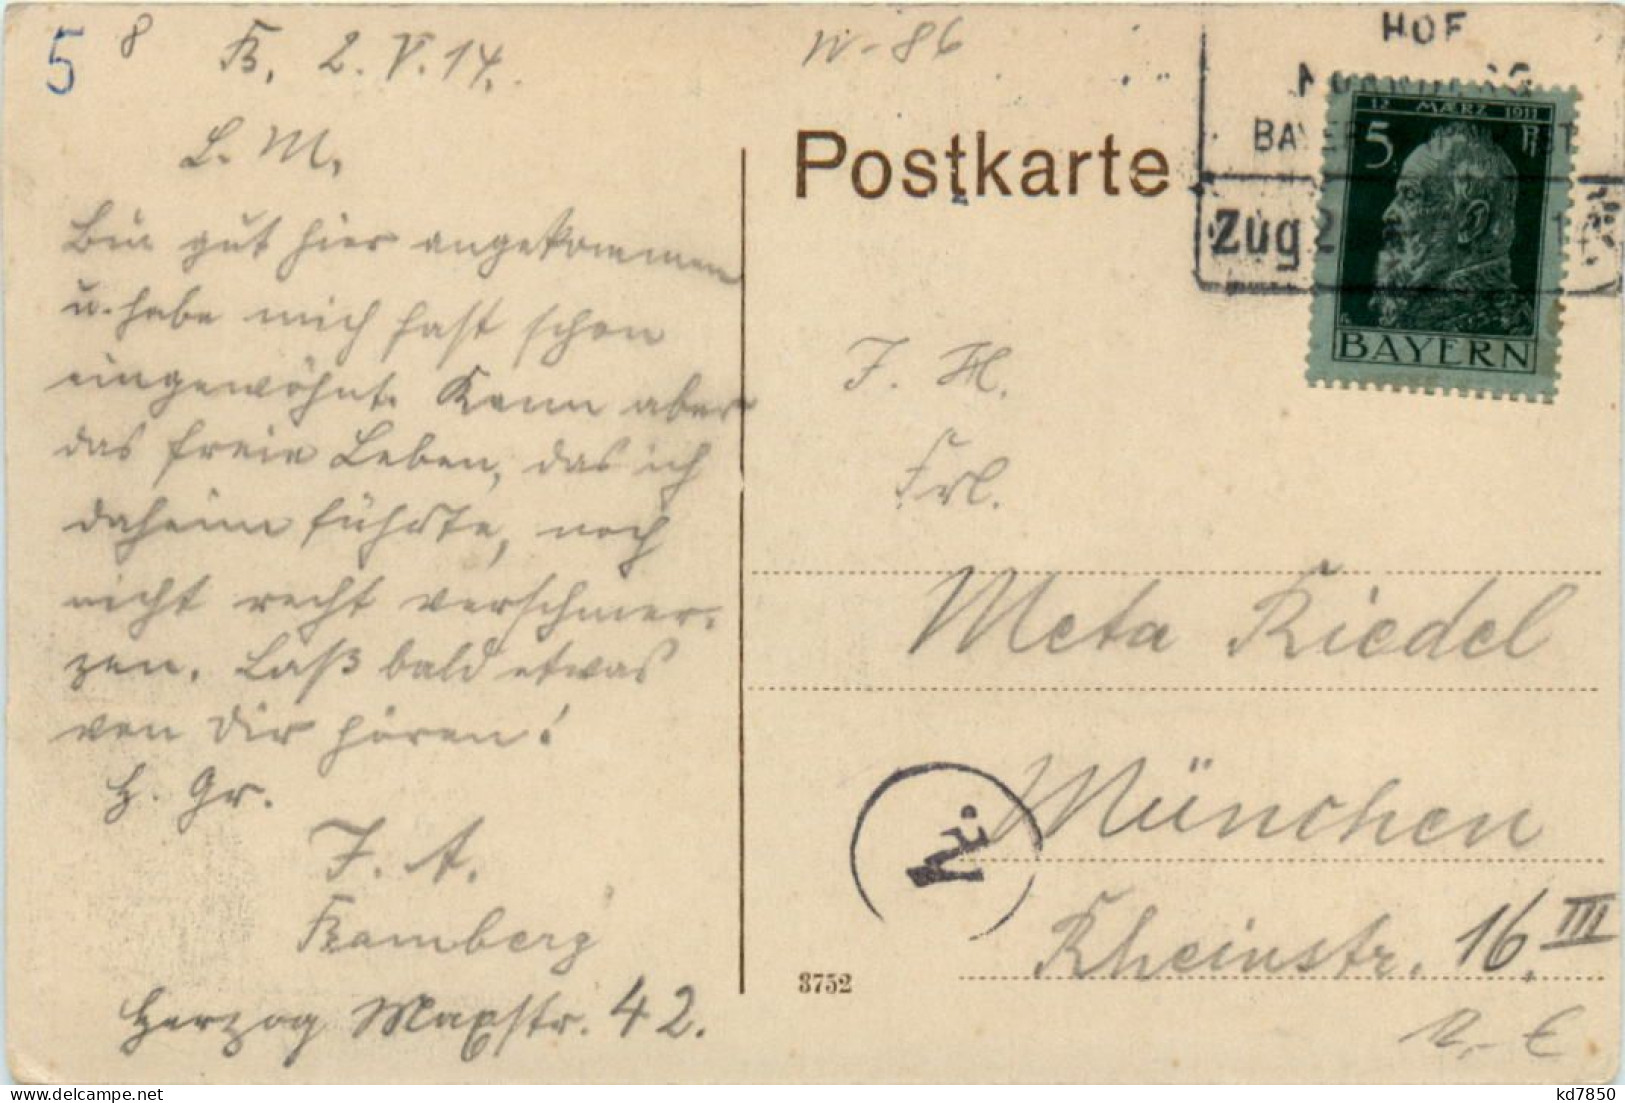 5 8 B, 2. V. 14.
L. M,
Bin gut hier angekommen
u. habe mich fast schon
eingewöhnt. Kann aber
das freie Leben, das ich
daheim führte, noch
nicht recht verschmer-
zen. Laß bald etwas
von Dir hören!
H. Gr.
J. A.
Bamberg
Herzog Maxstr. 42.
Postkarte
HOF
BAYER
Zug 2
12 MÆRZ 1911
5 Pf
BAYERN
J. H.
Frl.
Meta Riedel
München
Rheinstr. 16. III
3752
12,- €
kd7850
delcampe.net